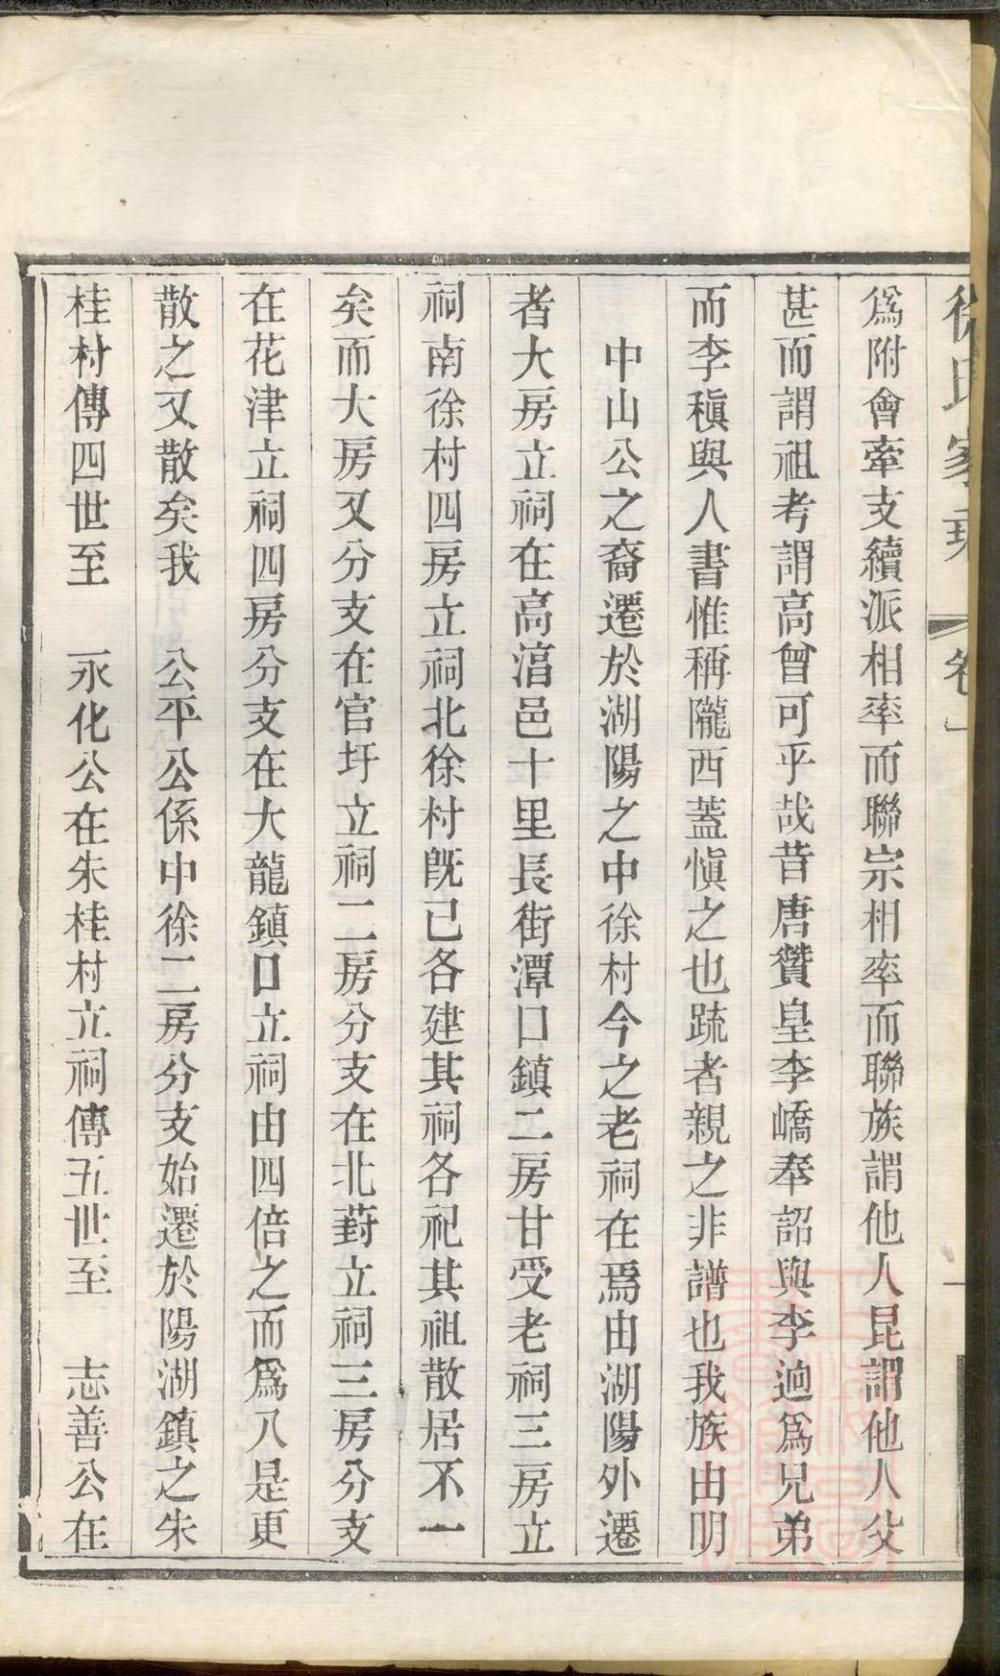 徐氏家乘 卷一
爲附會牽支續派相率而聯宗相率而聯族謂他人昆謂他人父
甚而謂祖考謂高曾可乎哉昔唐贊皇李嶠奉詔與李迥爲兄弟
而李稹與人書惟稱隴西蓋愼之也疏者親之非譜也我族由明
中山公之裔遷於湖陽之中徐村今之老祠在焉由湖陽外遷
者大房立祠在高淯邑十里長街潭口鎮二房甘受老祠三房立
祠南徐村四房立祠北徐村旣已各建其祠各祀其祖散居不一
矣而大房又分支在官圩立祠二房分支在北葑立祠三房分支
在花津立祠四房分支在大龍鎮口立祠由四倍之而爲八是更
散之又散矣我 公平公係中徐二房分支始遷於陽湖鎮之朱
桂村傳四世至 永化公在朱桂村立祠傳五世至 志善公在